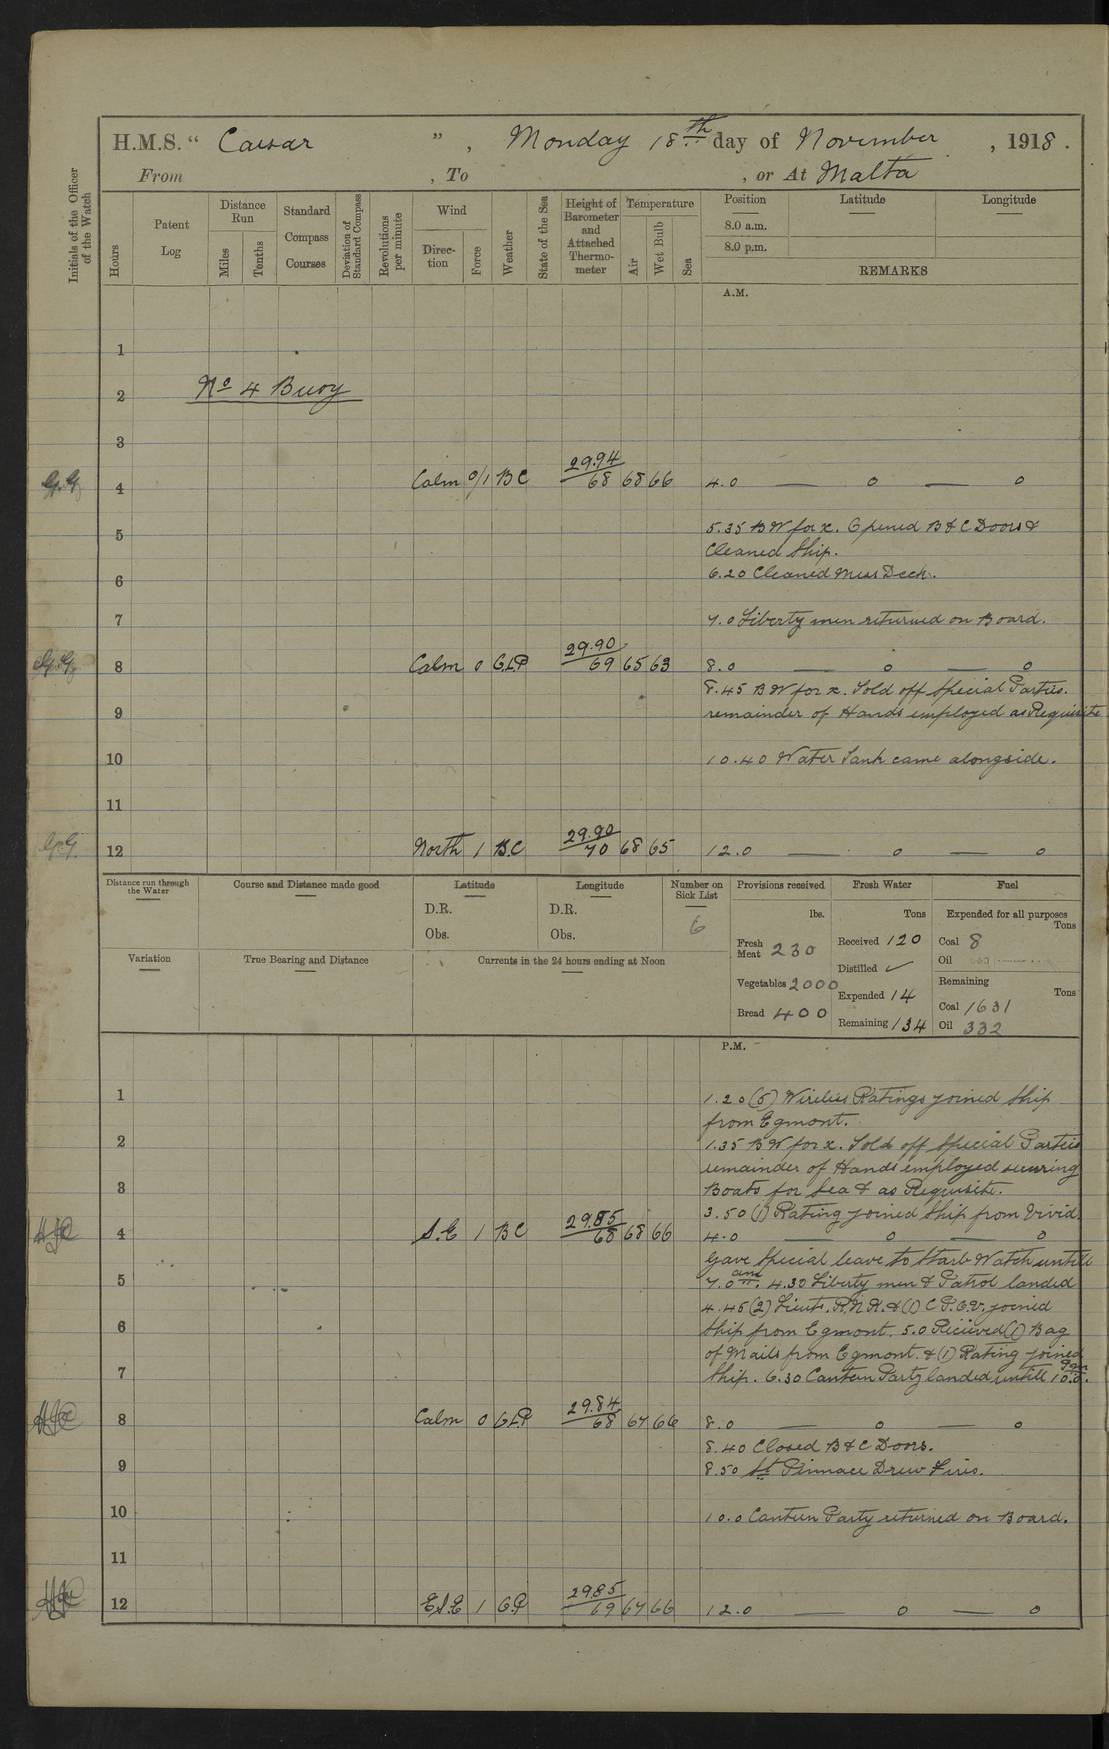 H.M.S. “ Caesar ”, Monday 18th day of November, 1918.
From , To , or At Malta
Initials of the Officer of the Watch
Hours
Patent Log
Distance Run
Miles
Tenths
Standard Compass Courses
Deviation of Standard Compass
Revolutions per minute
Wind
Direction
Force
Weather
State of the Sea
Height of Barometer and Attached Thermometer
Temperature
Air
Wet Bulb
Sea
Position Latitude Longitude
8.0 a.m.
8.0 p.m.
REMARKS
A.M.
1
2 No 4 Buoy
3
4 Calm 0/1 BC 29.94 68 68 66 4.0 — 0 — 0
5 5.35 BW for x. Opened B & C Doors &
Cleaned Ship.
6 6.20 Cleaned Mess Deck.
7 7.0 Liberty men returned on Board.
8 Calm 0 C.L.P 29.90 69 65 63 8.0 — 0 — 0
8.45 BW for x. Told off Special Parties.
9 remainder of Hands employed as Requisite
10 10.40 Water Tank came alongside.
11
12 North 1 B.C 29.90 70 68 65 12.0 — 0 — 0
Distance run through the Water
Course and Distance made good
Latitude
D.R.
Obs.
Longitude
D.R.
Obs.
Number on Sick List
6
Provisions received
lbs.
Fresh Meat 230
Vegetables 2000
Bread 400
Fresh Water
Tons
Received 120
Distilled ✓
Expended 14
Remaining 134
Fuel
Expended for all purposes
Tons
Coal 8
Oil
Remaining
Tons
Coal 1631
Oil 332
Variation
True Bearing and Distance
Currents in the 24 hours ending at Noon
P.M.
1 1.20 (5) Wireless Ratings joined Ship
from Egmont.
2 1.35 BW for x. Told off Special Parties
remainder of Hands employed securing
3 Boats for Sea & as Requisite.
3.50 (1) Rating joined Ship from Vivid.
4 S.E 1 BC 29.85 68 68 66 4.0 — 0 — 0
Gave Special leave to Starb Watch untill
5 7.0 am. 4.30 Liberty men & Patrol landed
4.45 (2) Lieuts. R.N.R. & (1) C.P.O.
joined
6 Ship from Egmont. 5.0 Recieved (1) Bag
of Mails from Egmont. & (1) Rating joined
7 Ship. 6.30 Canteen Party landed untill 10.0 Pm.
8 Calm 0 C.L.P 29.84 68 67 66 8.0 — 0 — 0
8.40 Closed B & C Doors.
9 8.50 St Pinnace Drew Fires.
10 10.0 Canteen Party returned on Board.
11
12 E.S.E 1 C.P 29.85 69 67 66 12.0 — 0 — 0